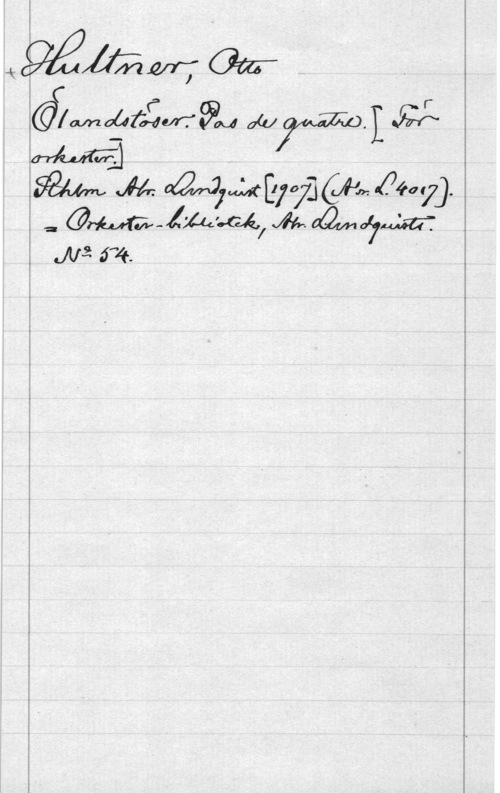 Hultner, Otto
Ölandstöser. Pas de quatre. [För
orkester.]
Sthlm Abr. Lundquist [1907] (A'r. L. 4017).
= Orkester-bibliotek, Abr. Lundquists.
Nº 54.